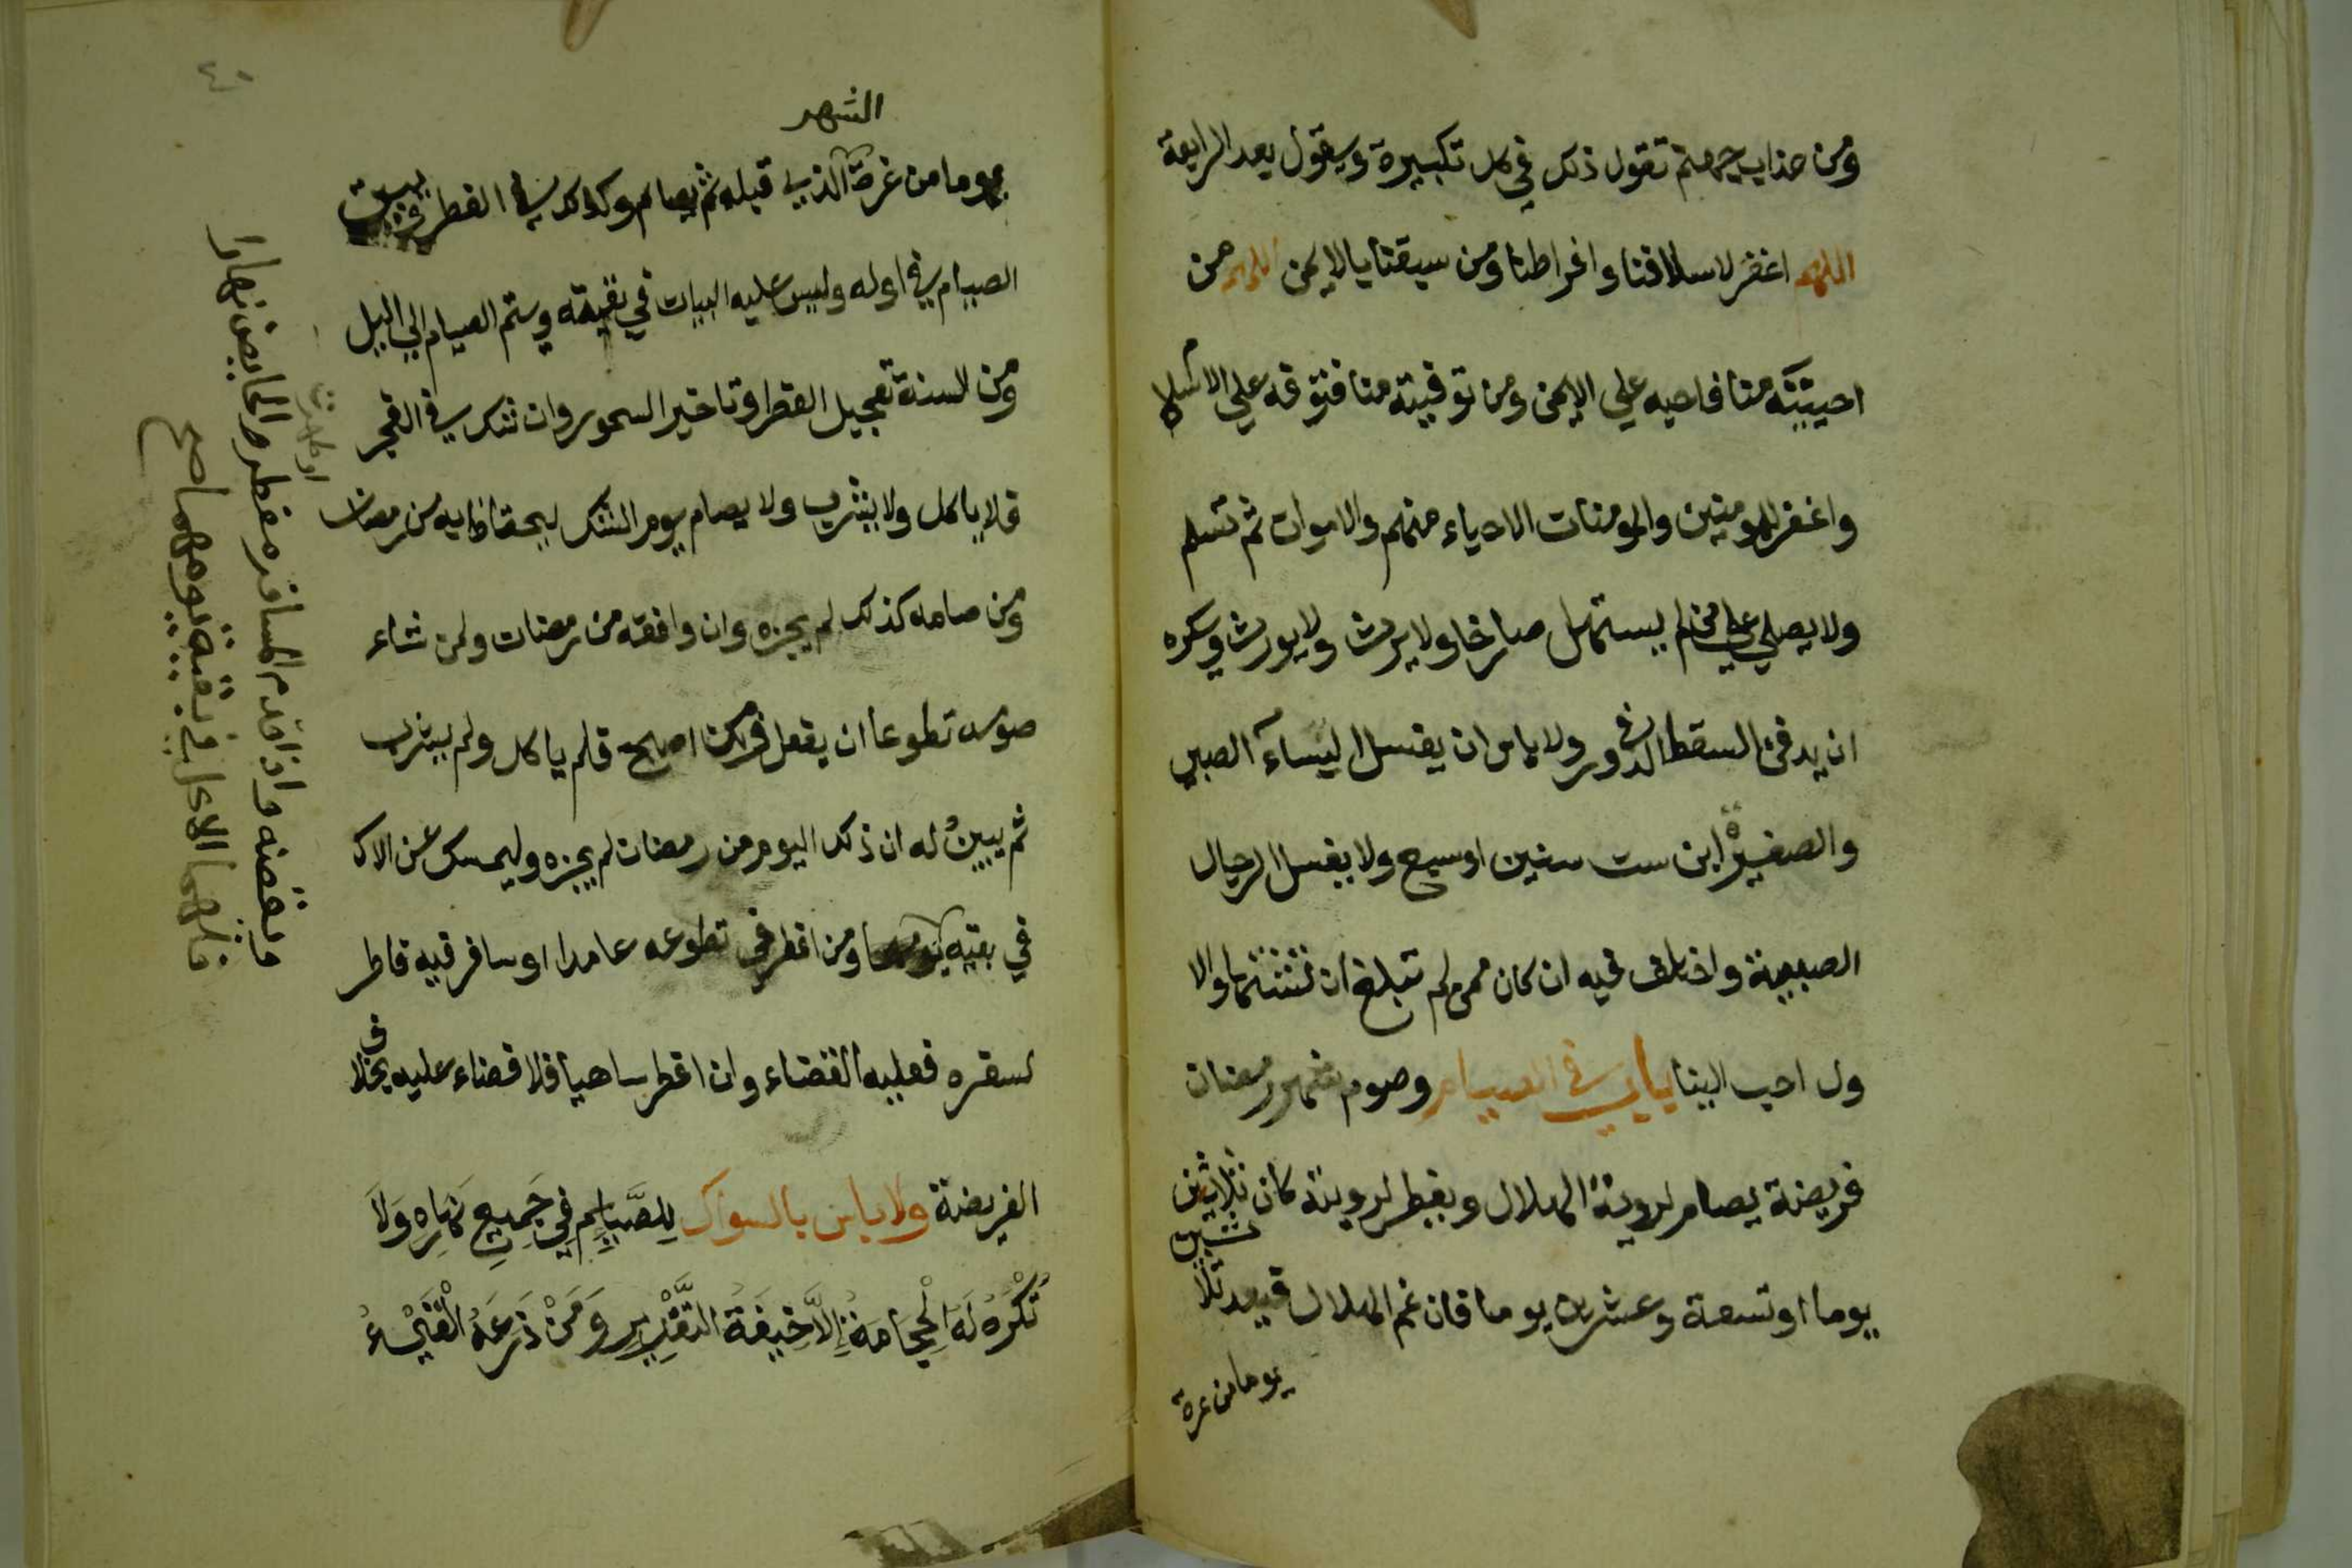 ومن عذاب جهنم تقول ذلك في كل تكبيرة ويقول بعد الرابعة
اللهم اغفر لاسلافنا وافراطنا ومن سبقنا بالايمن اللهم من
احييته منا فاحيه علي الايمن ومن توفيته منا فتوفه علي الاسلام
واغفر للمومنين والمومنات الاحياء منهم والاموات ثم تسلم
ولا يصلي علي من لم يستهل صارخا ولا يرث ولا يورث ويكره
ان يدفن السقط في الدور ولا باس ان يغسل النساء الصبي
والصغير ابن ست سنين او سبع ولا يغسل الرجال
الصبية واختلف فيه ان كان ممن لم تبلغ ان تشتها والا
ول احب الينا باب في الصيام وصوم شهر رمضان
فريضة يصام لروية الهلال ويفطر لرويته كان ثلاثين
يوما او تسعة وعشرين يوما فان غم الهلال فيعد ثلا
ثين
يوما من غرة
٤٠
الشهر
يوما من غرة الذي قبله ثم يصام وكذلك في الفطر ويبيت
الصيام في اوله وليس عليه البيات في بقيته ويتم الصيام الي اليل
ومن السنة تعجيل الفطر وتاخير السحور وان شك في الفجر
فلا ياكل ولا يشرب ولا يصام يوم الشك ليحتاط به من رمضان
ومن صامه كذلك لم يجزه وان وافقه من رمضان ولمن شاء
صومه تطوعا ان يفعل ومن اصبح فلم ياكل ولم يشرب
ثم يبين له ان ذلك اليوم من رمضان لم يجزه وليمسك عن الاكل
في بقيته ومن افطر في تطوعه عامدا او سافر فيه فاطر
لسفره فعليه القضاء وان افطر ساهيا فلا قضاء عليه بخلاف
الفريضة ولا باس بالسواك لِلصَّايِمِ فِي جَمِيعِ نَهَارِهِ وَلَا
تُكْرَهُ لَهُ الْحِجَامَةُ إِلَّا خِيفَةَ التَّغْرِيرِ وَمَنْ ذَرَعَهُ الْقَيْءُ
ويقضه واذا قدم المسافر مفطرا والحايض نهارا
او طهرت
فلهما الاكل في بقية يومهما صح